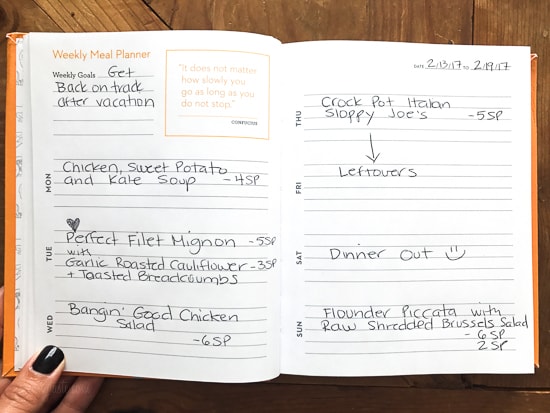 Weekly Meal Planner
Weekly Goals Get
Back on track
after vacation
"It does not matter
how slowly you
go as long as you
do not stop."
CONFUCIUS
MON
Chicken, Sweet Potato
and Kale Soup - 4SP
TUE
Perfect Filet Mignon - 5SP
with
Garlic Roasted Cauliflower - 3SP
+ Toasted Breadcrumbs
WED
Bangin' Good Chicken
Salad
- 6SP
DATE 2/13/17 TO 2/19/17
THU
Crock Pot Italian
Sloppy Joe's - 5SP
FRI
Leftovers
SAT
Dinner Out
SUN
Flounder Piccata with
Raw Shredded Brussels Salad
- 6SP
2SP